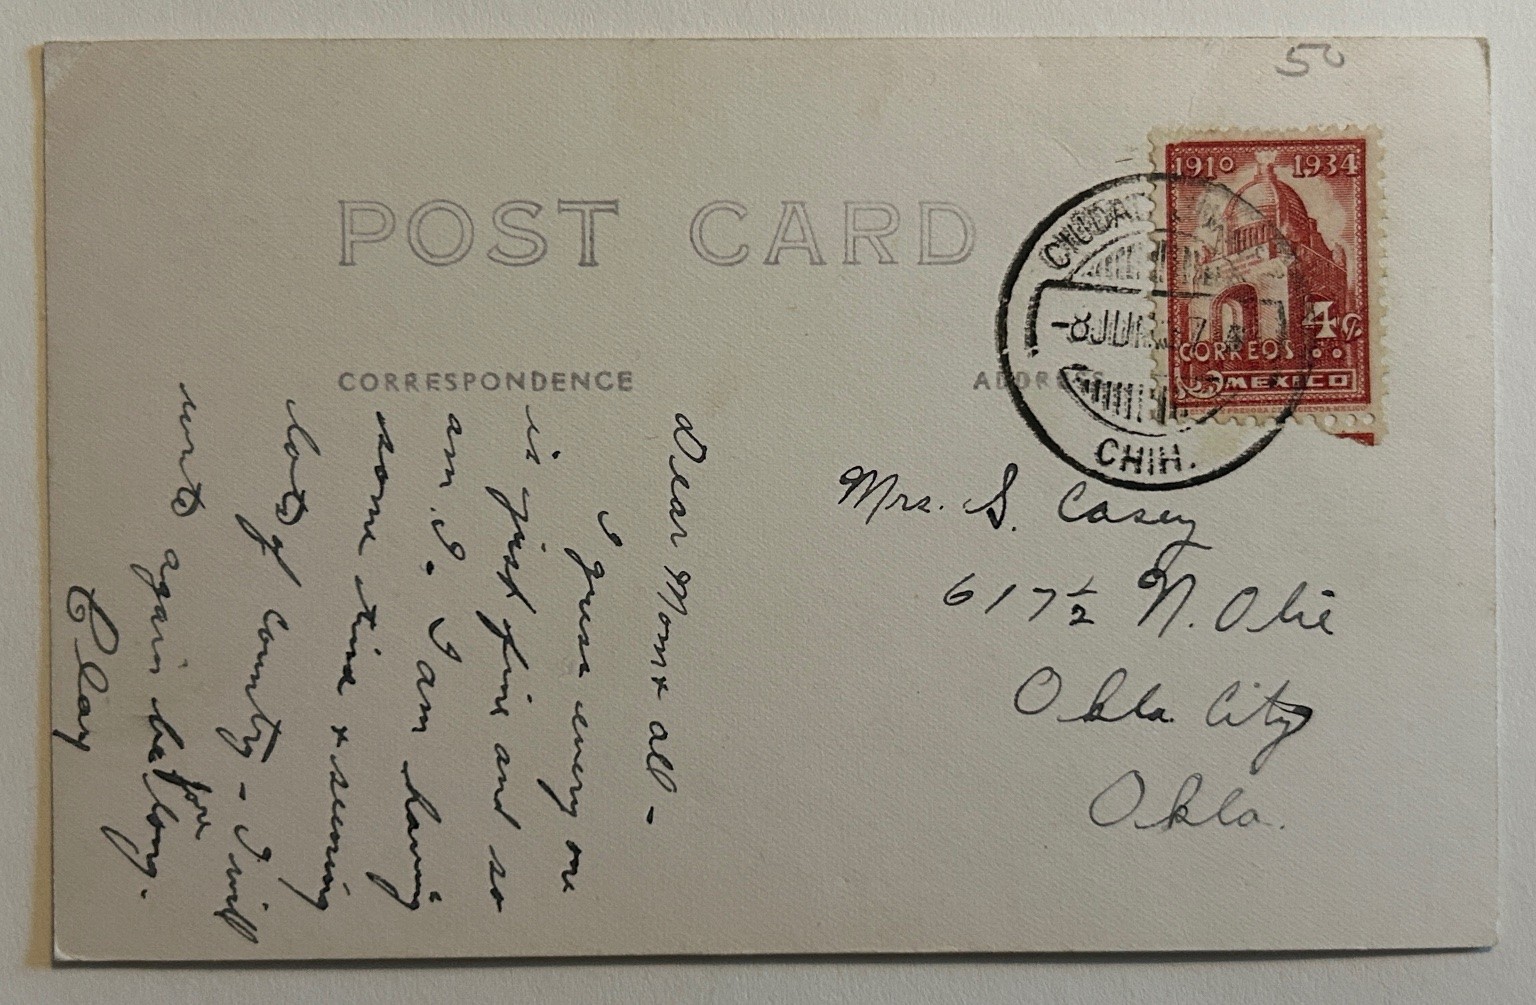 50
POST CARD
1910 1934
4¢
CORREOS
MEXICO
CIUDAD
8 JUN. 37
CHIH.
CORRESPONDENCE
ADDRESS
Dear Mom & all -
I guess every one
is just fine and so
am I. I am having
some time & seeing
lots of country - I will
write again before long.
Clay
Mrs. S. Casey
617 ½ N. Olie
Okla. City
Okla.